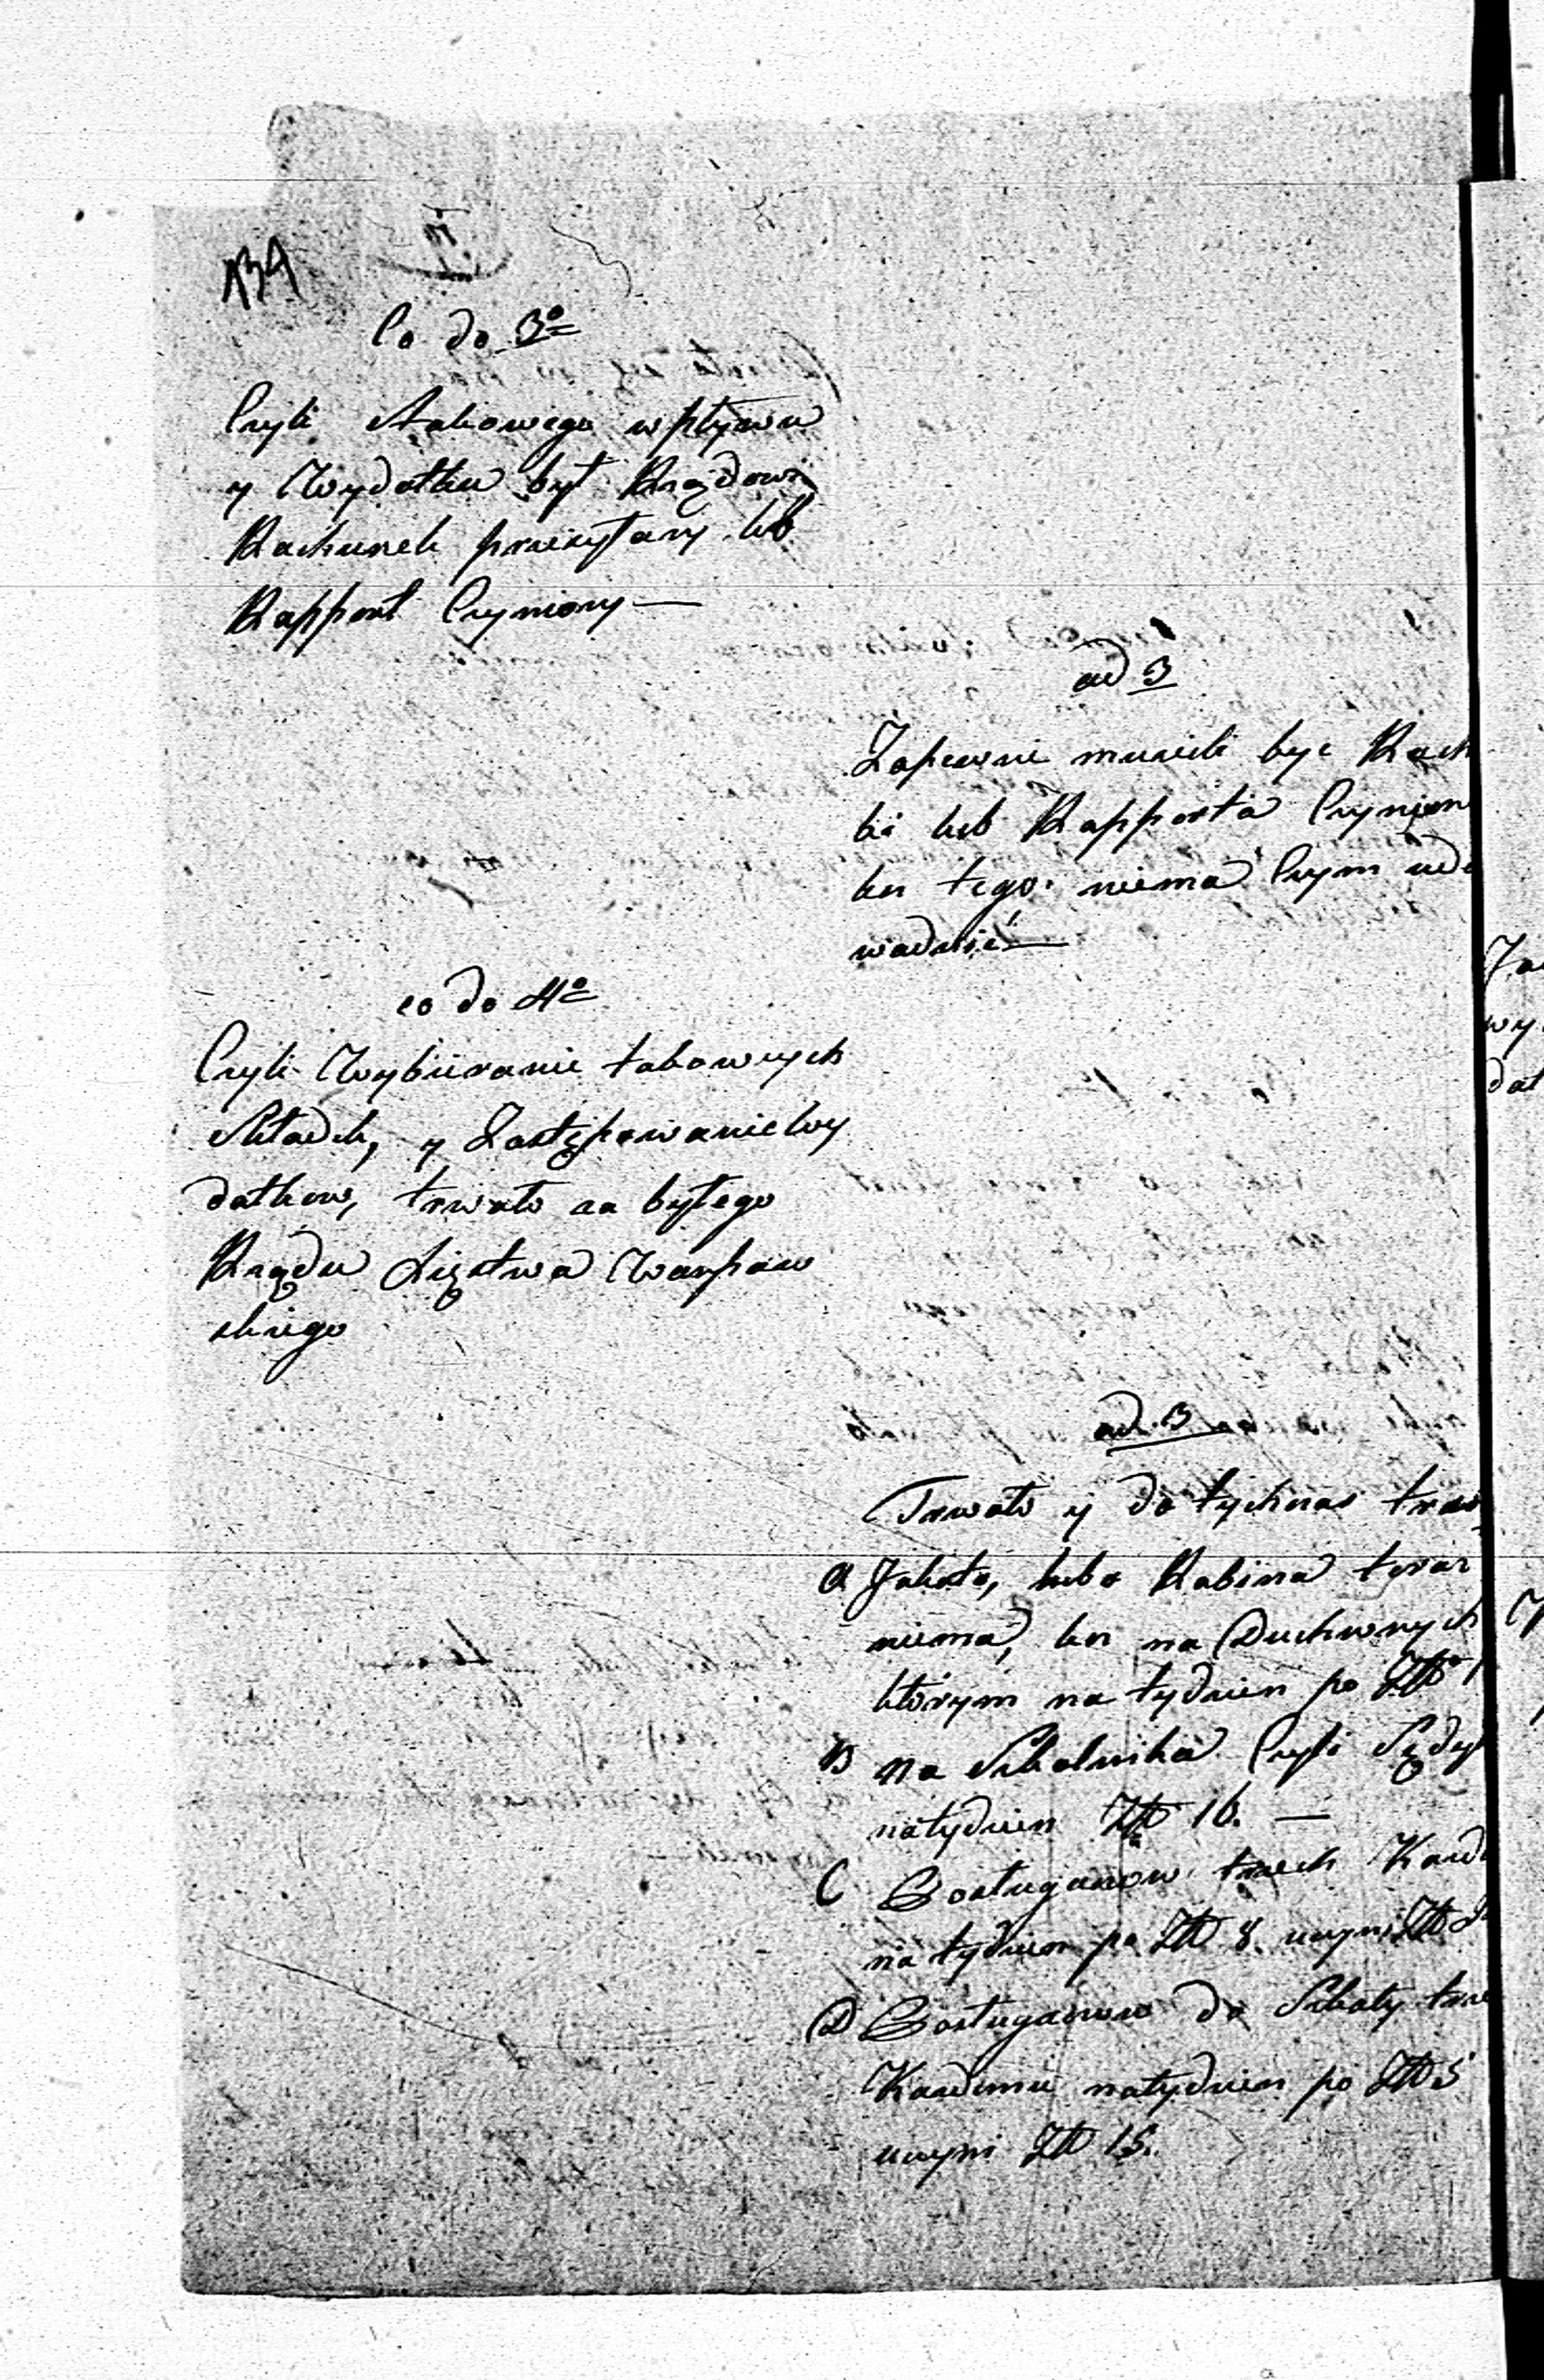 134
Co do 3o
Czyli takowego wpływu
y Wydatku był Rządowi
Rachunek przeczytany lub
Rapport Czyniony —
ad 3
Zapewne musieli być Rach
ki lub Rapporta Czynion
lecz tego niema Czym udo
wodnić —
co do 4o
Czyli Wybieranie takowych
Składek, y Zastępowanie Wy
datkow, trwało za byłego
Rządu Xięstwa Warszaw
skiego
ad 3
Trwało y do tychczas trwa
A Jakoto, lubo Rabina teraz
niema, lecz na Duchownych
którym na tydzien po Złł
B na Szkolnika Czyli Sędzi
natydzien Złł 16. —
C Posługaczow trzech Każd
na tydzien po Złł 8. uczyni Złł
D Posługaczow do Szkoły trze
Każdemu natydzien po Złł 5
uczyni Złł 15.
Za
wy
dat